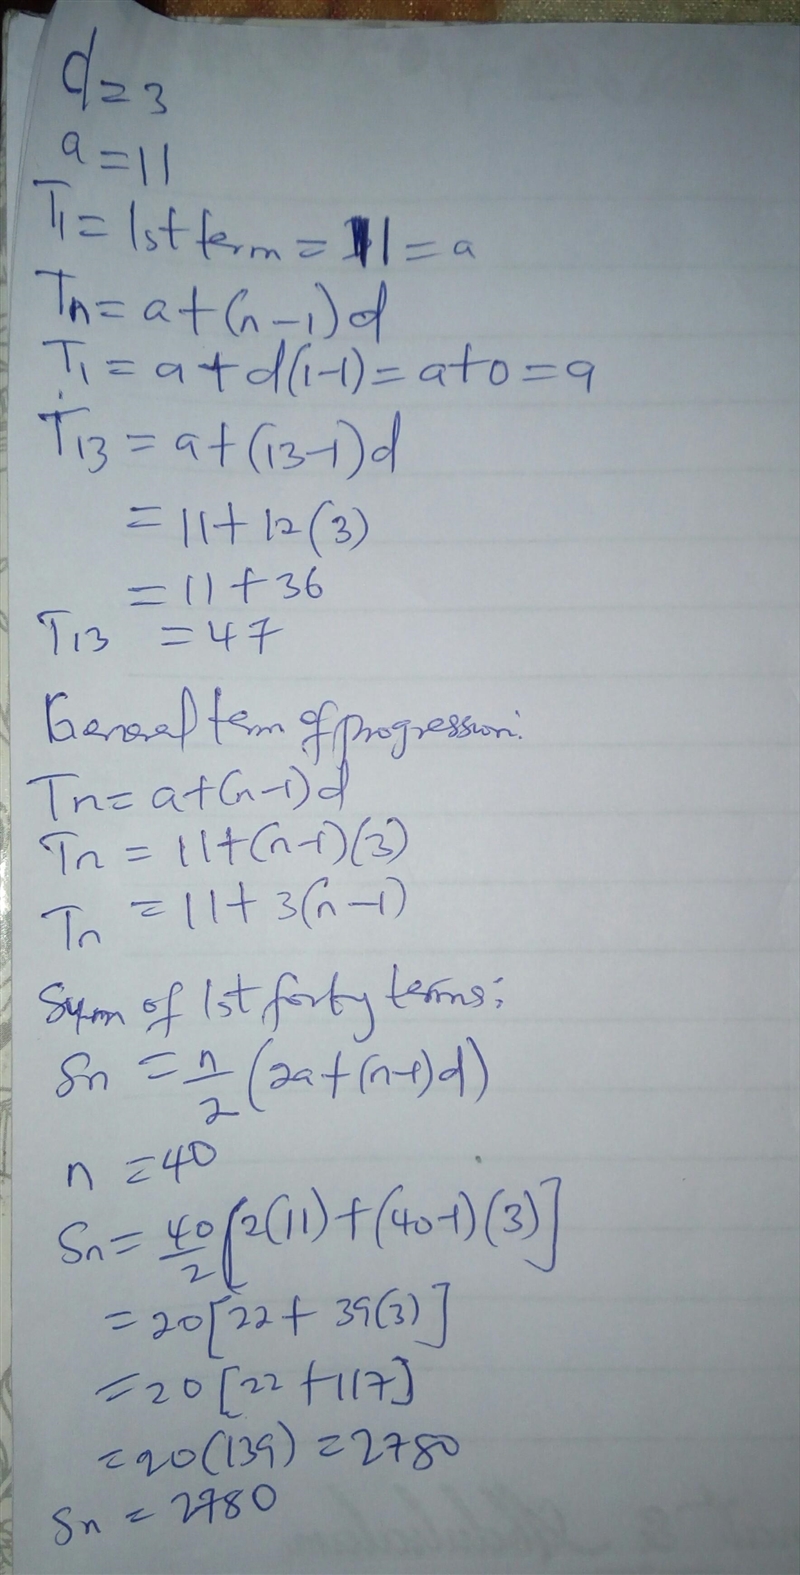 d=3
a=11
T1=1st term=11=a
Tn=a+(n-1)d
T1=a+d(1-1)=a+0=a
T13=a+(13-1)d
=11+12(3)
=11+36
T13 =47
General term of progression:
Tn=a+(n-1)d
Tn=11+(n-1)(3)
Tn =11+3(n-1)
Sum of 1st forty terms;
Sn=n/2(2a+(n-1)d)
n=40
Sn=40/2[2(11)+(40-1)(3)]
=20[22+39(3)]
=20[22+117]
=20(139)=2780
Sn=2780